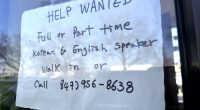 HELP WANTED
Full or Part time
Korean & English speaker
walk in or
Call 847) 956-8638